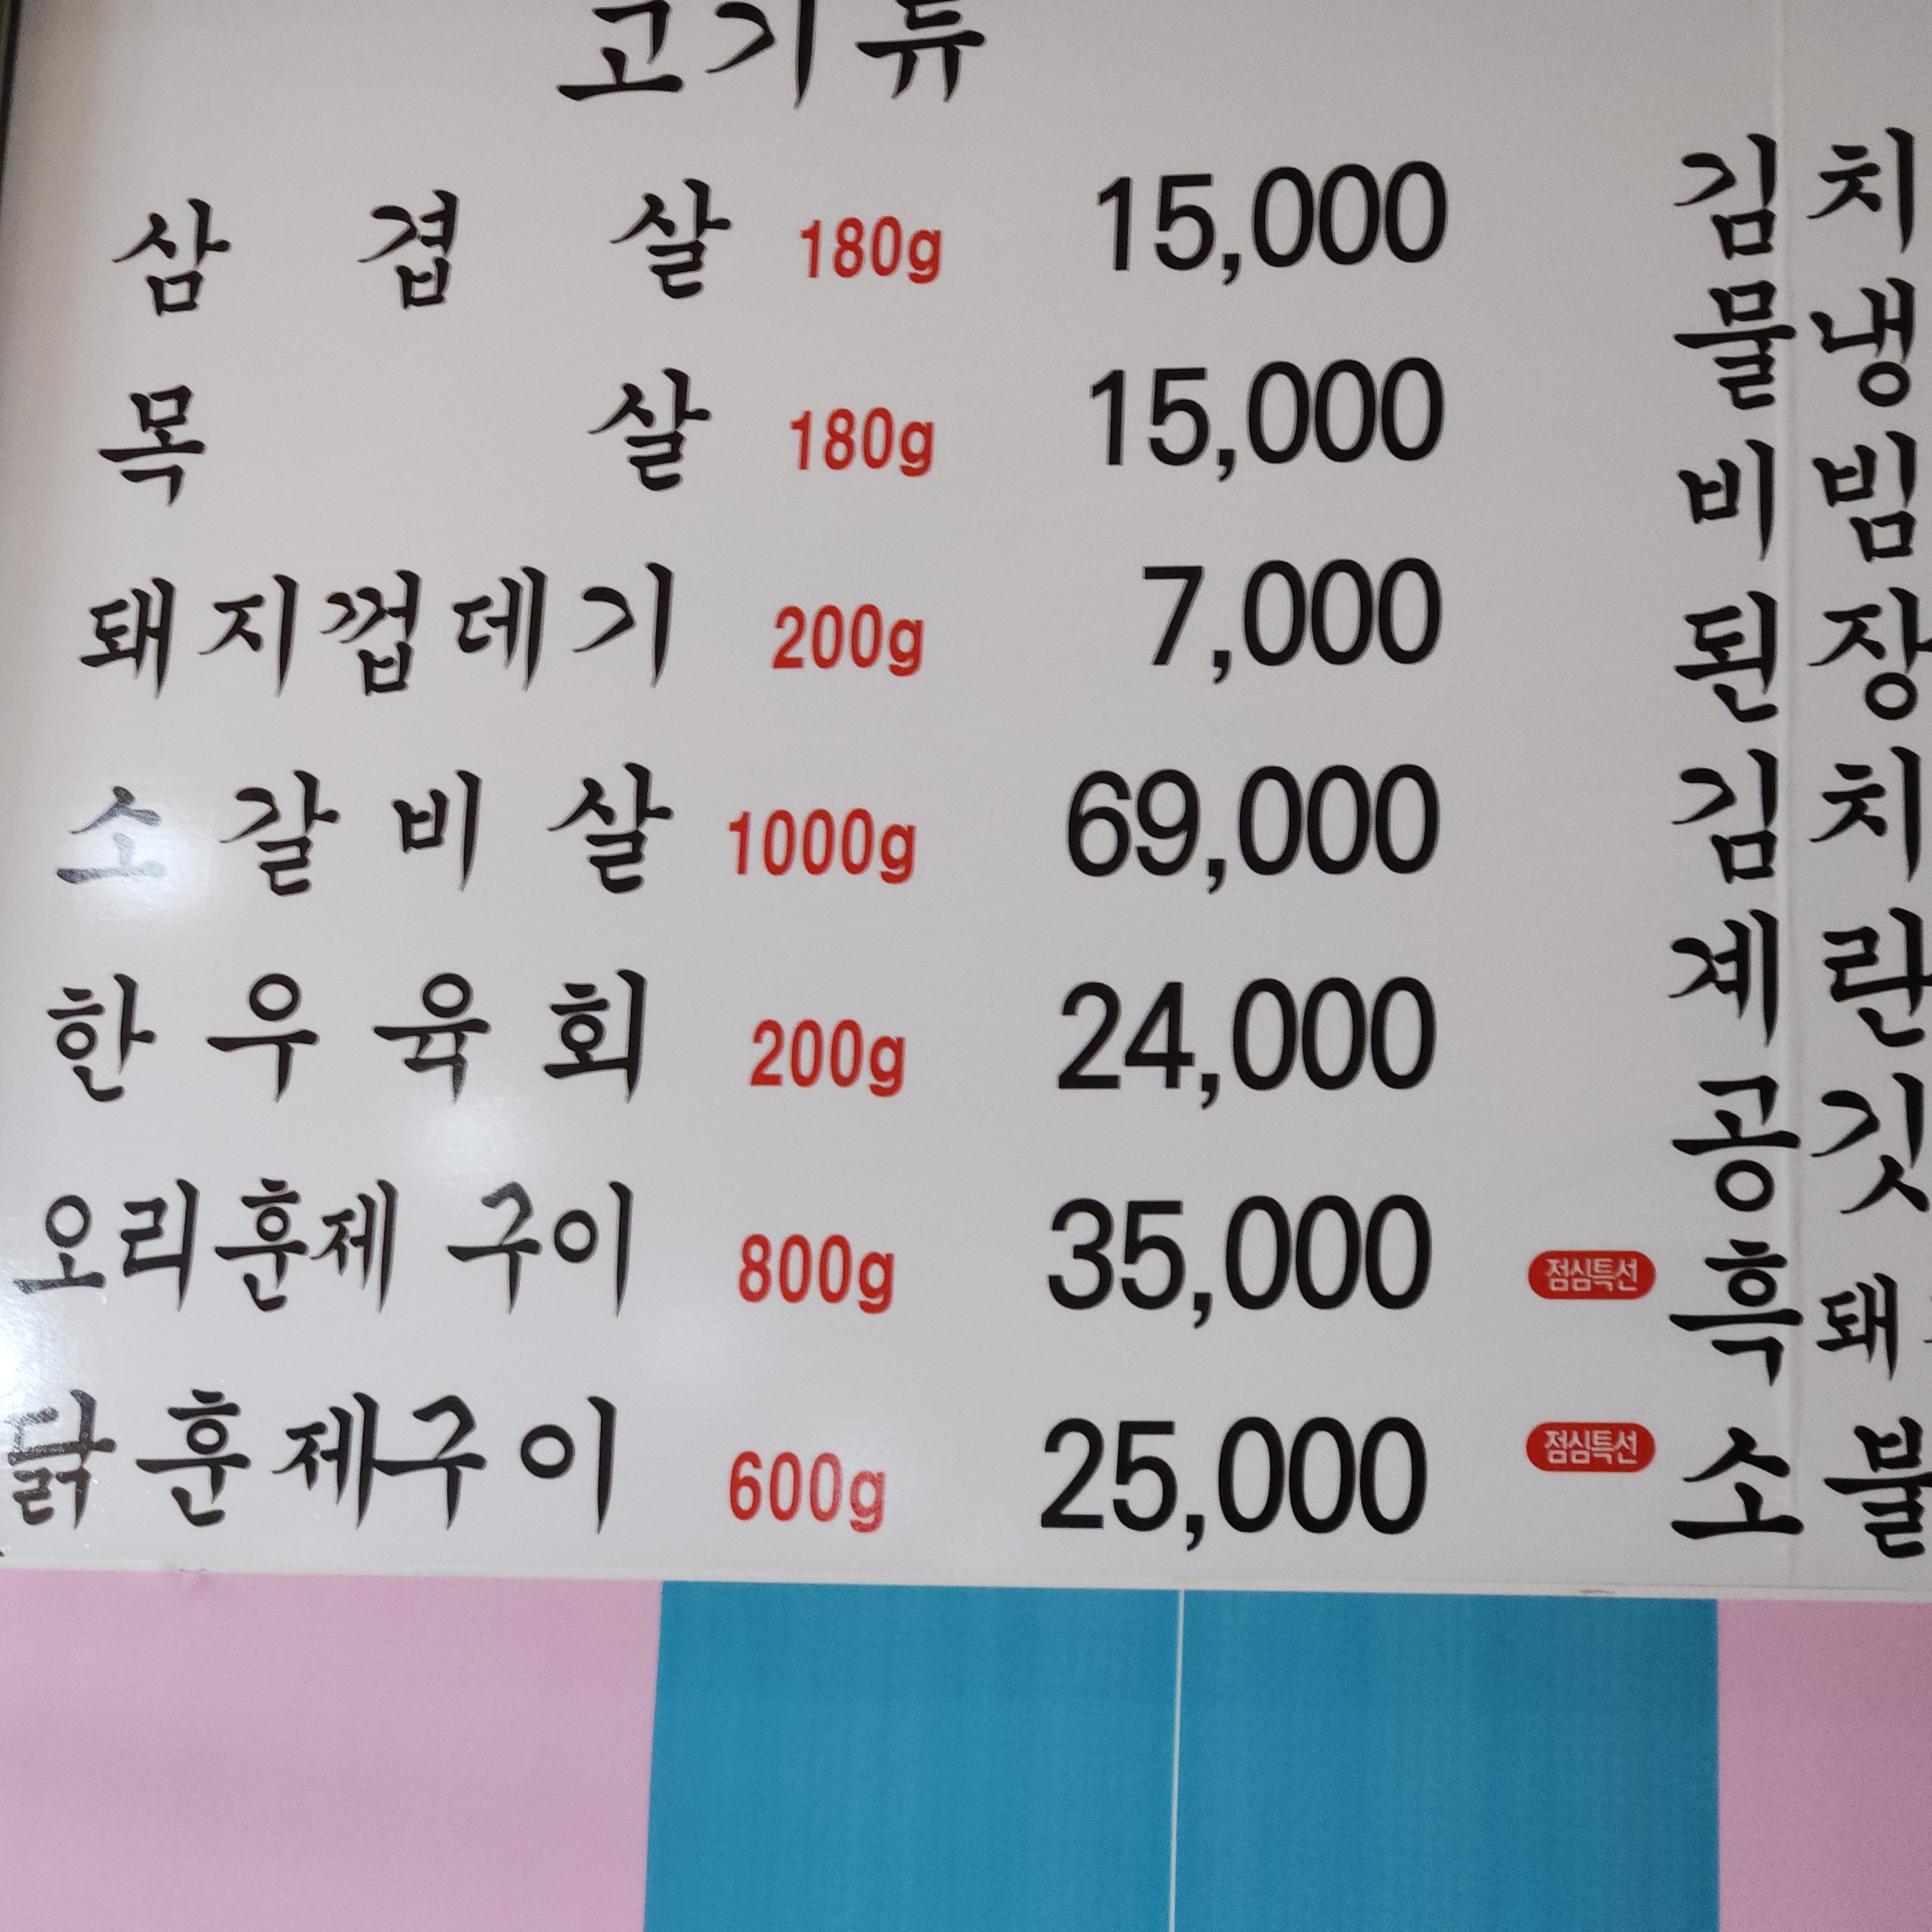 고기류
삼겹살 180g 15,000
목살 180g 15,000
돼지껍데기 200g 7,000
소갈비살 1000g 69,000
한우육회 200g 24,000
오리훈제 구이 800g 35,000
닭훈제구이 600g 25,000
김치
물냉
비빔
된장
김치
계란
공깃
점심특선 흑돼
점심특선 소불